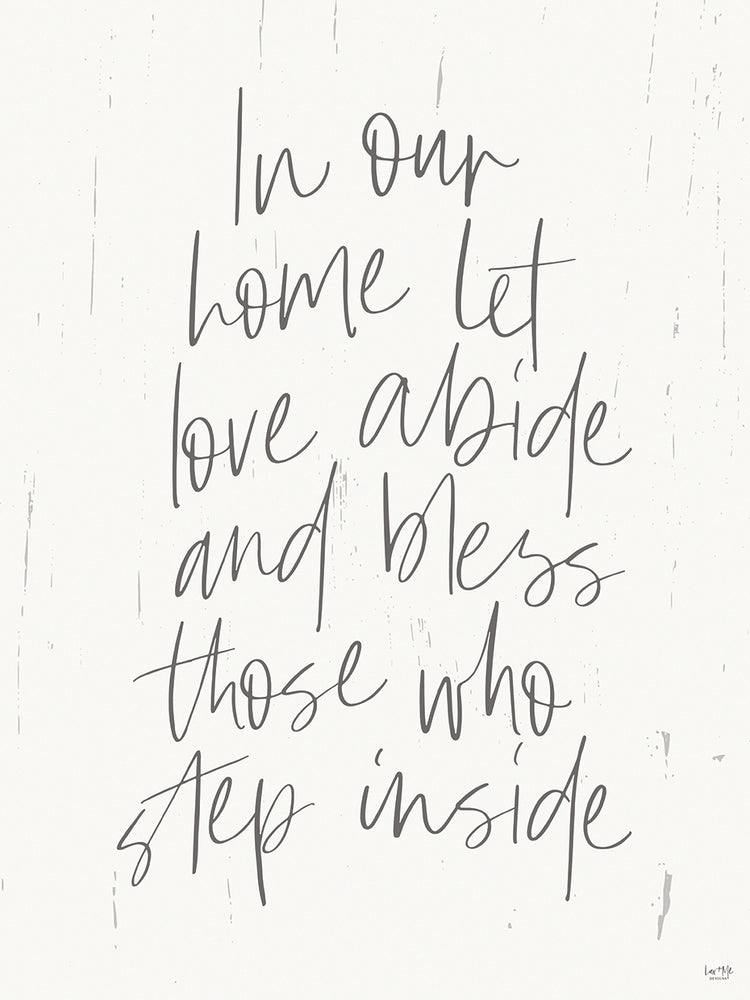 In our
home let
love abide
and bless
those who
step inside
Lux + Me
DESIGNS